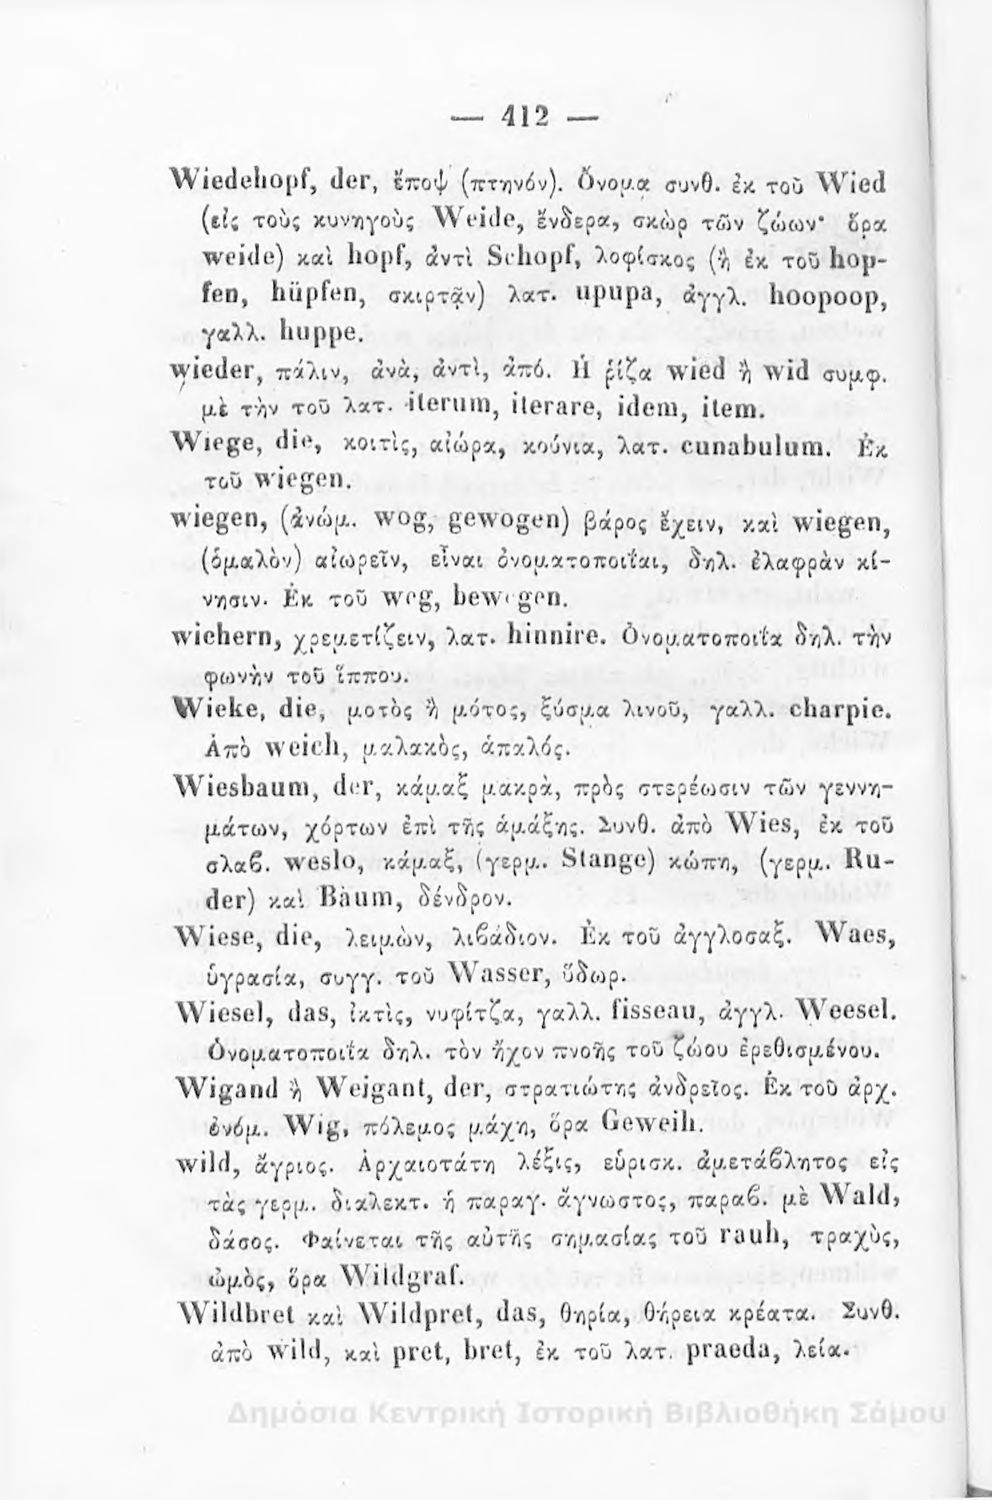 — 412 —
Wiedehopf, der, ἔποψ (πτηνόν). Ὄνομα συνθ. ἐκ τοῦ Wied
(εἰς τοὺς κυνηγοὺς Weide, ἔνδερα, σκὼρ τῶν ζώων· ὅρα
weide) καὶ hopf, ἀντὶ Schopf, λοφίσκος (ἢ ἐκ τοῦ hop-
fen, hüpfen, σκιρτᾷν) λατ. upupa, ἀγγλ. hoopoop,
γαλλ. huppe.
wieder, πάλιν, ἀνὰ, ἀντὶ, ἀπό. Ἡ ῥίζα wied ἢ wid συμφ.
μὲ τὴν τοῦ λατ. iterum, iterare, idem, item.
Wiege, die, κοιτὶς, αἰώρα, κούνια, λατ. cunabulum. Ἐκ
τοῦ wiegen.
wiegen, (ἀνώμ. wog, gewogen) βάρος ἔχειν, καὶ wiegen,
(ὁμαλὸν) αἰωρεῖν, εἶναι ὀνοματοποιΐαι, δηλ. ἐλαφρὰν κί-
νησιν. Ἐκ τοῦ weg, bewegen.
wichern, χρεμετίζειν, λατ. hinnire. Ὀνοματοποιΐα δηλ. τὴν
φωνὴν τοῦ ἵππου.
Wieke, die, μοτὸς ἢ μότος, ξύσμα λινοῦ, γαλλ. charpie.
Ἀπὸ weich, μαλακὸς, ἁπαλός.
Wiesbaum, der, κάμαξ μακρὰ, πρὸς στερέωσιν τῶν γεννη-
μάτων, χόρτων ἐπὶ τῆς ἁμάξης. Συνθ. ἀπὸ Wies, ἐκ τοῦ
σλαβ. weslo, κάμαξ, (γερμ. Stange) κώπη, (γερμ. Ru-
der) καὶ Baum, δένδρον.
Wiese, die, λειμὼν, λιβάδιον. Ἐκ τοῦ ἀγγλοσαξ. Waes,
ὑγρασία, συγγ. τοῦ Wasser, ὕδωρ.
Wiesel, das, ἰκτὶς, νυφίτζα, γαλλ. fisseau, ἀγγλ. Weesel.
Ὀνοματοποιΐα δηλ. τὸν ἦχον πνοῆς τοῦ ζώου ἐρεθισμένου.
Wigand ἢ Weigant, der, στρατιώτης ἀνδρεῖος. Ἐκ τοῦ ἀρχ.
ὀνόμ. Wig, πόλεμος μάχη, ὅρα Geweih.
wild, ἄγριος. Ἀρχαιοτάτη λέξις, εὑρισκ. ἀμετάβλητος εἰς
τὰς γερμ. διαλεκτ. ἡ παραγ. ἄγνωστος, παραβ. μὲ Wald,
δάσος. Φαίνεται τῆς αὐτῆς σημασίας τοῦ rauh, τραχὺς,
ὠμὸς, ὅρα Wildgraf.
Wildbret καὶ Wildpret, das, θηρία, θήρεια κρέατα. Συνθ.
ἀπὸ wild, καὶ pret, bret, ἐκ τοῦ λατ. praeda, λεία.
Δημόσια Κεντρική Ιστορική Βιβλιοθήκη Σάμου